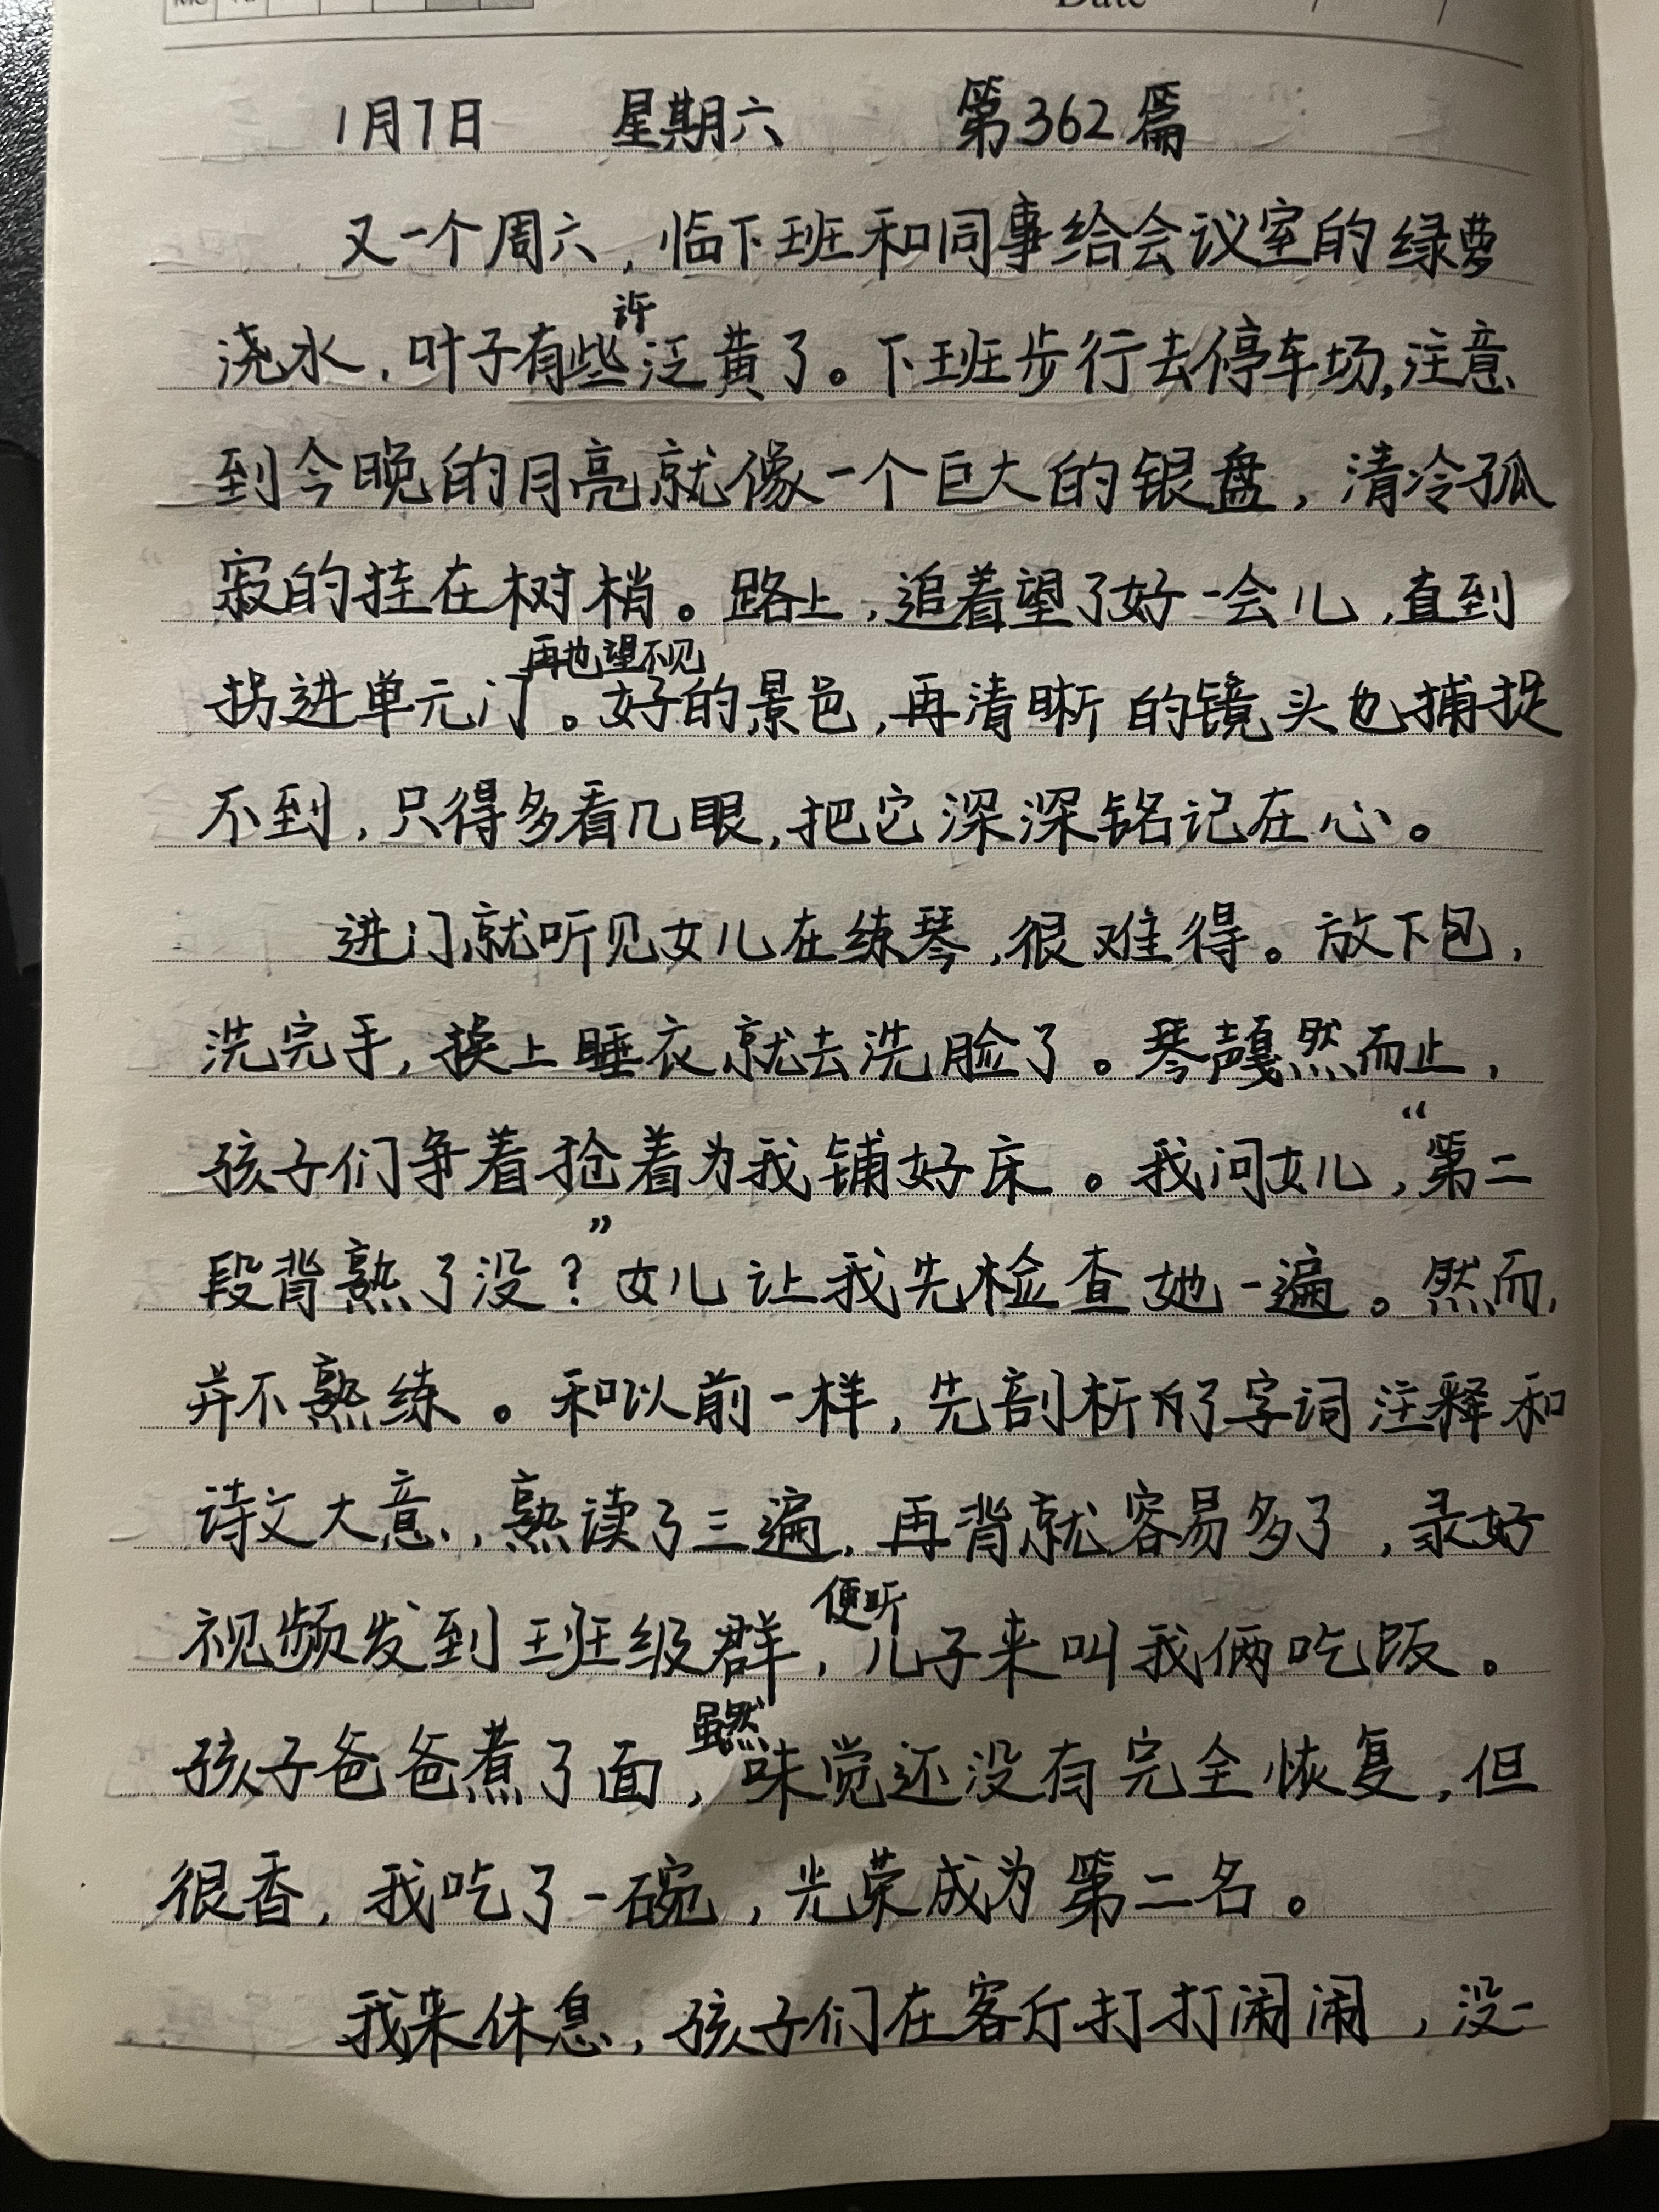 Date
1月7日 星期六 第362篇
又一个周六，临下班和同事给会议室的绿萝
浇水，叶子有些许泛黄了。下班步行去停车场，注意
到今晚的月亮就像一个巨大的银盘，清冷孤
寂的挂在树梢。路上，追着望了好一会儿，直到
拐进单元门再也望不见。好的景色，再清晰的镜头也捕捉
不到，只得多看几眼，把它深深铭记在心。
进门就听见女儿在练琴，很难得。放下包，
洗完手，换上睡衣就去洗脸了。琴声戛然而止，
孩子们争着抢着为我铺好床。我问女儿，“第二
段背熟了没？”女儿让我先检查她一遍。然而，
并不熟练。和以前一样，先剖析了字词注释和
诗文大意，熟读了三遍，再背就容易多了，录好
视频发到班级群，便听儿子来叫我俩吃饭。
孩子爸爸煮了面，虽然味觉还没有完全恢复，但
很香，我吃了一碗，光荣成为第二名。
我来休息，孩子们在客厅打打闹闹，没一